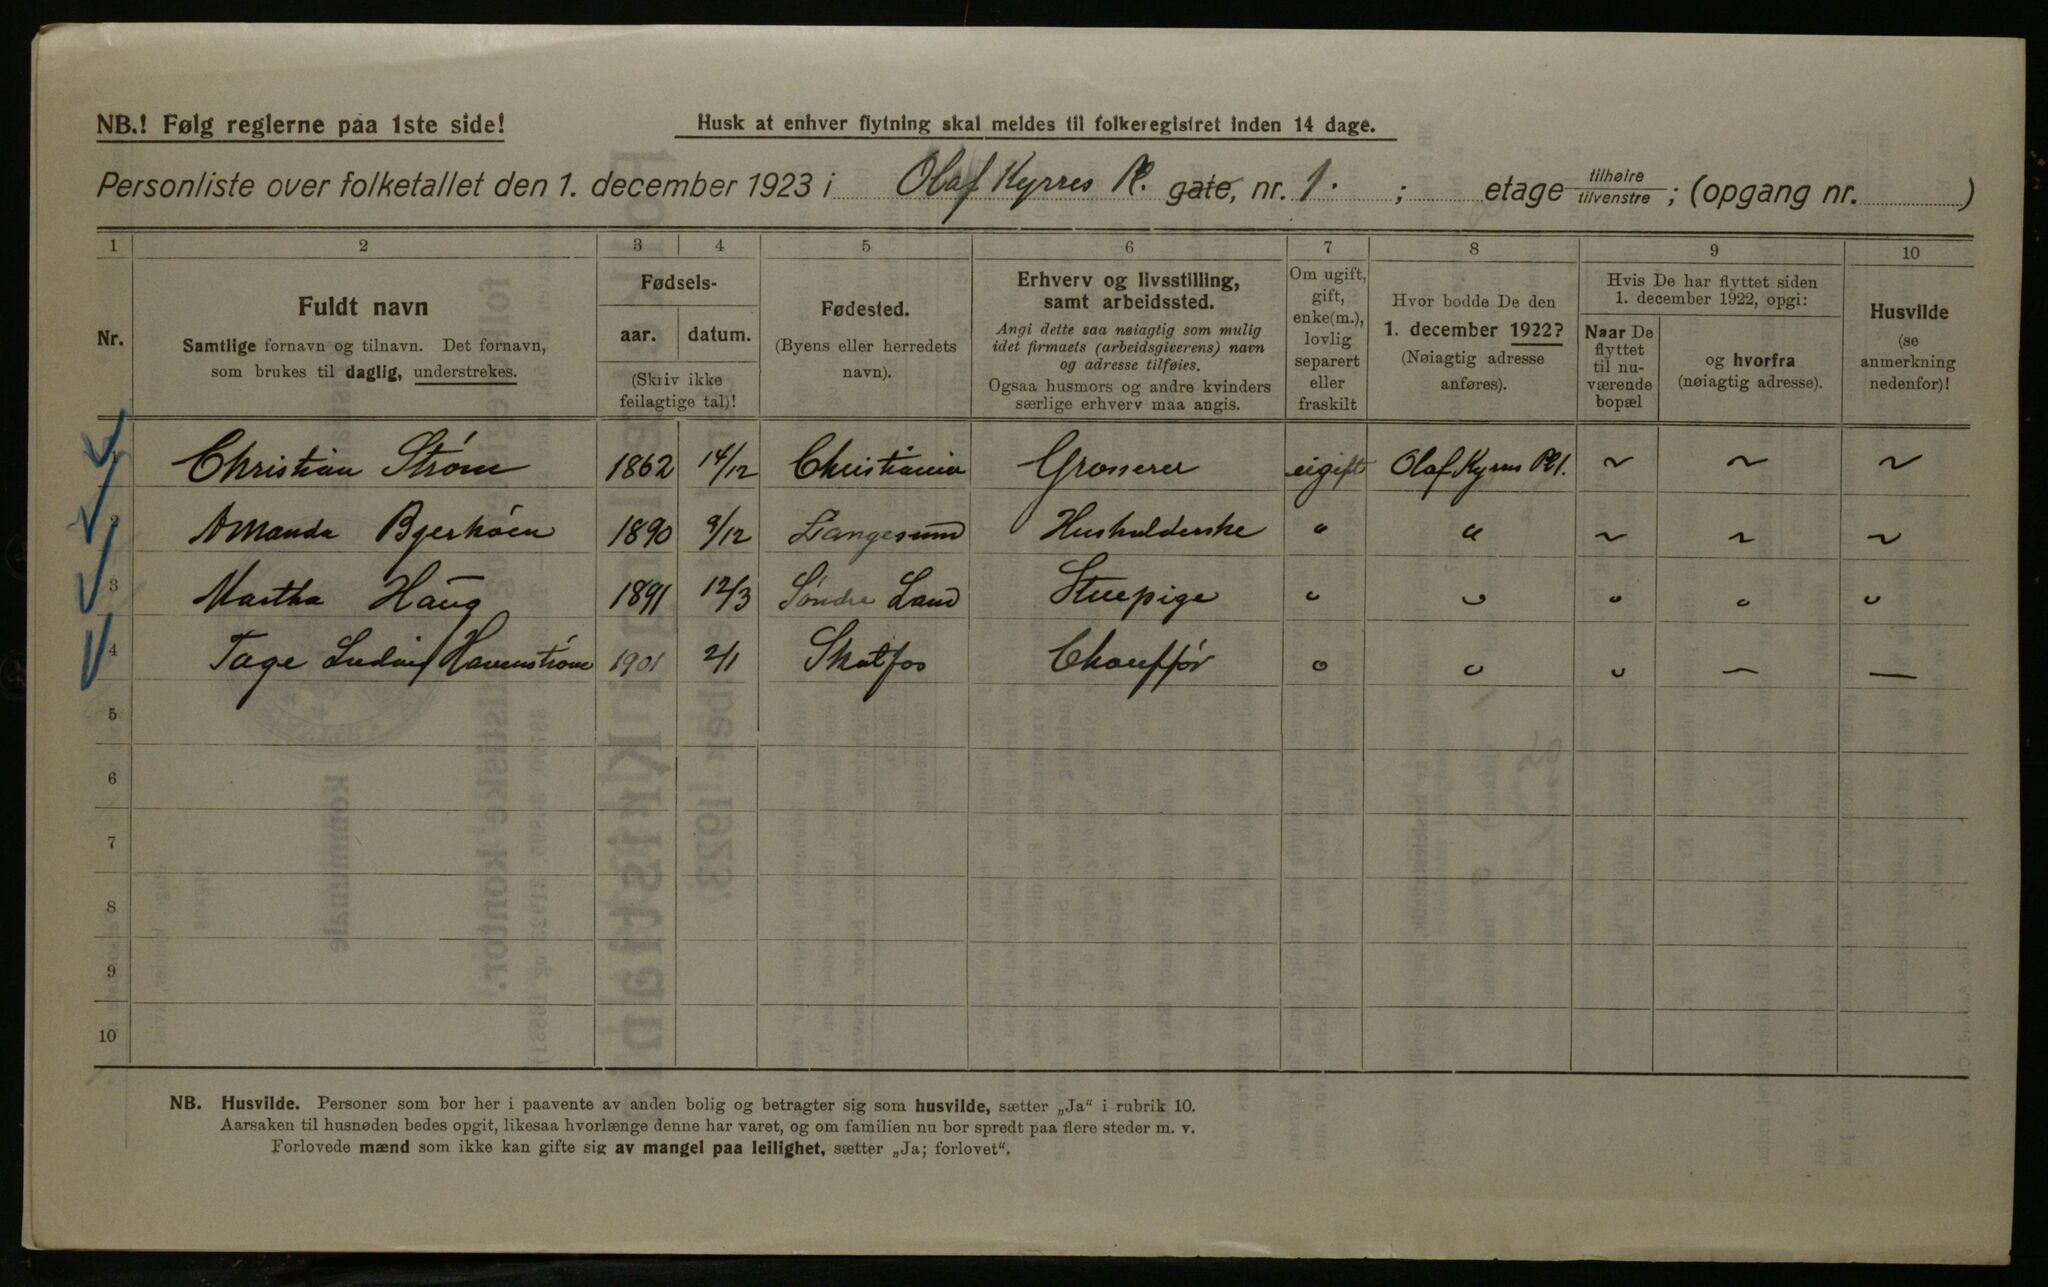 NB.! Følg reglerne paa 1ste side!
Husk at enhver flytning skal meldes til folkeregistret inden 14 dage.
Personliste over folketallet den 1. december 1923 i Olaf Kyrres Pl. gate, nr. 1. ; etage tilhøire tilvenstre ; (opgang nr. )
1 2 3 4 5 6 7 8 9 10
Nr.
Fuldt navn
Samtlige fornavn og tilnavn. Det fornavn,
som brukes til daglig, understrekes.
Fødsels-
aar. datum.
(Skriv ikke
feilagtige tal)!
Fødested.
(Byens eller herredets
navn).
Erhverv og livsstilling,
samt arbeidssted.
Angi dette saa nøiagtig som mulig
idet firmaets (arbeidsgiverens) navn
og adresse tilføies.
Ogsaa husmors og andre kvinders
særlige erhverv maa angis.
Om ugift,
gift,
enke(m.),
lovlig
separert
eller
fraskilt
Hvor bodde De den
1. december 1922?
(Nøiagtig adresse
anføres).
Hvis De har flyttet siden
1. december 1922, opgi:
Naar De
flyttet
til nu-
værende
bopæl
og hvorfra
(nøiagtig adresse).
Husvilde
(se
anmerkning
nedenfor)!
1 Christian Strøm 1862 14/12 Christiania Grosserer ugift Olaf Kyrres Pl 1. ~ ~ ~
2 Amanda 1890 9/12 Langesund Husholderske " " ~ ~ ~
3 Martha Haug 1891 12/3 Søndre Land Stuepige " " " " "
4 Tage Ludvig 1901 2/1 Skotfos Chauffør " " " — —
5
6
7
8
9
10
NB. Husvilde. Personer som bor her i paavente av anden bolig og betragter sig som husvilde, sætter „Ja" i rubrik 10.
Aarsaken til husnøden bedes opgit, likesaa hvorlænge denne har varet, og om familien nu bor spredt paa flere steder m. v.
Forlovede mænd som ikke kan gifte sig av mangel paa leilighet, sætter „Ja; forlovet".